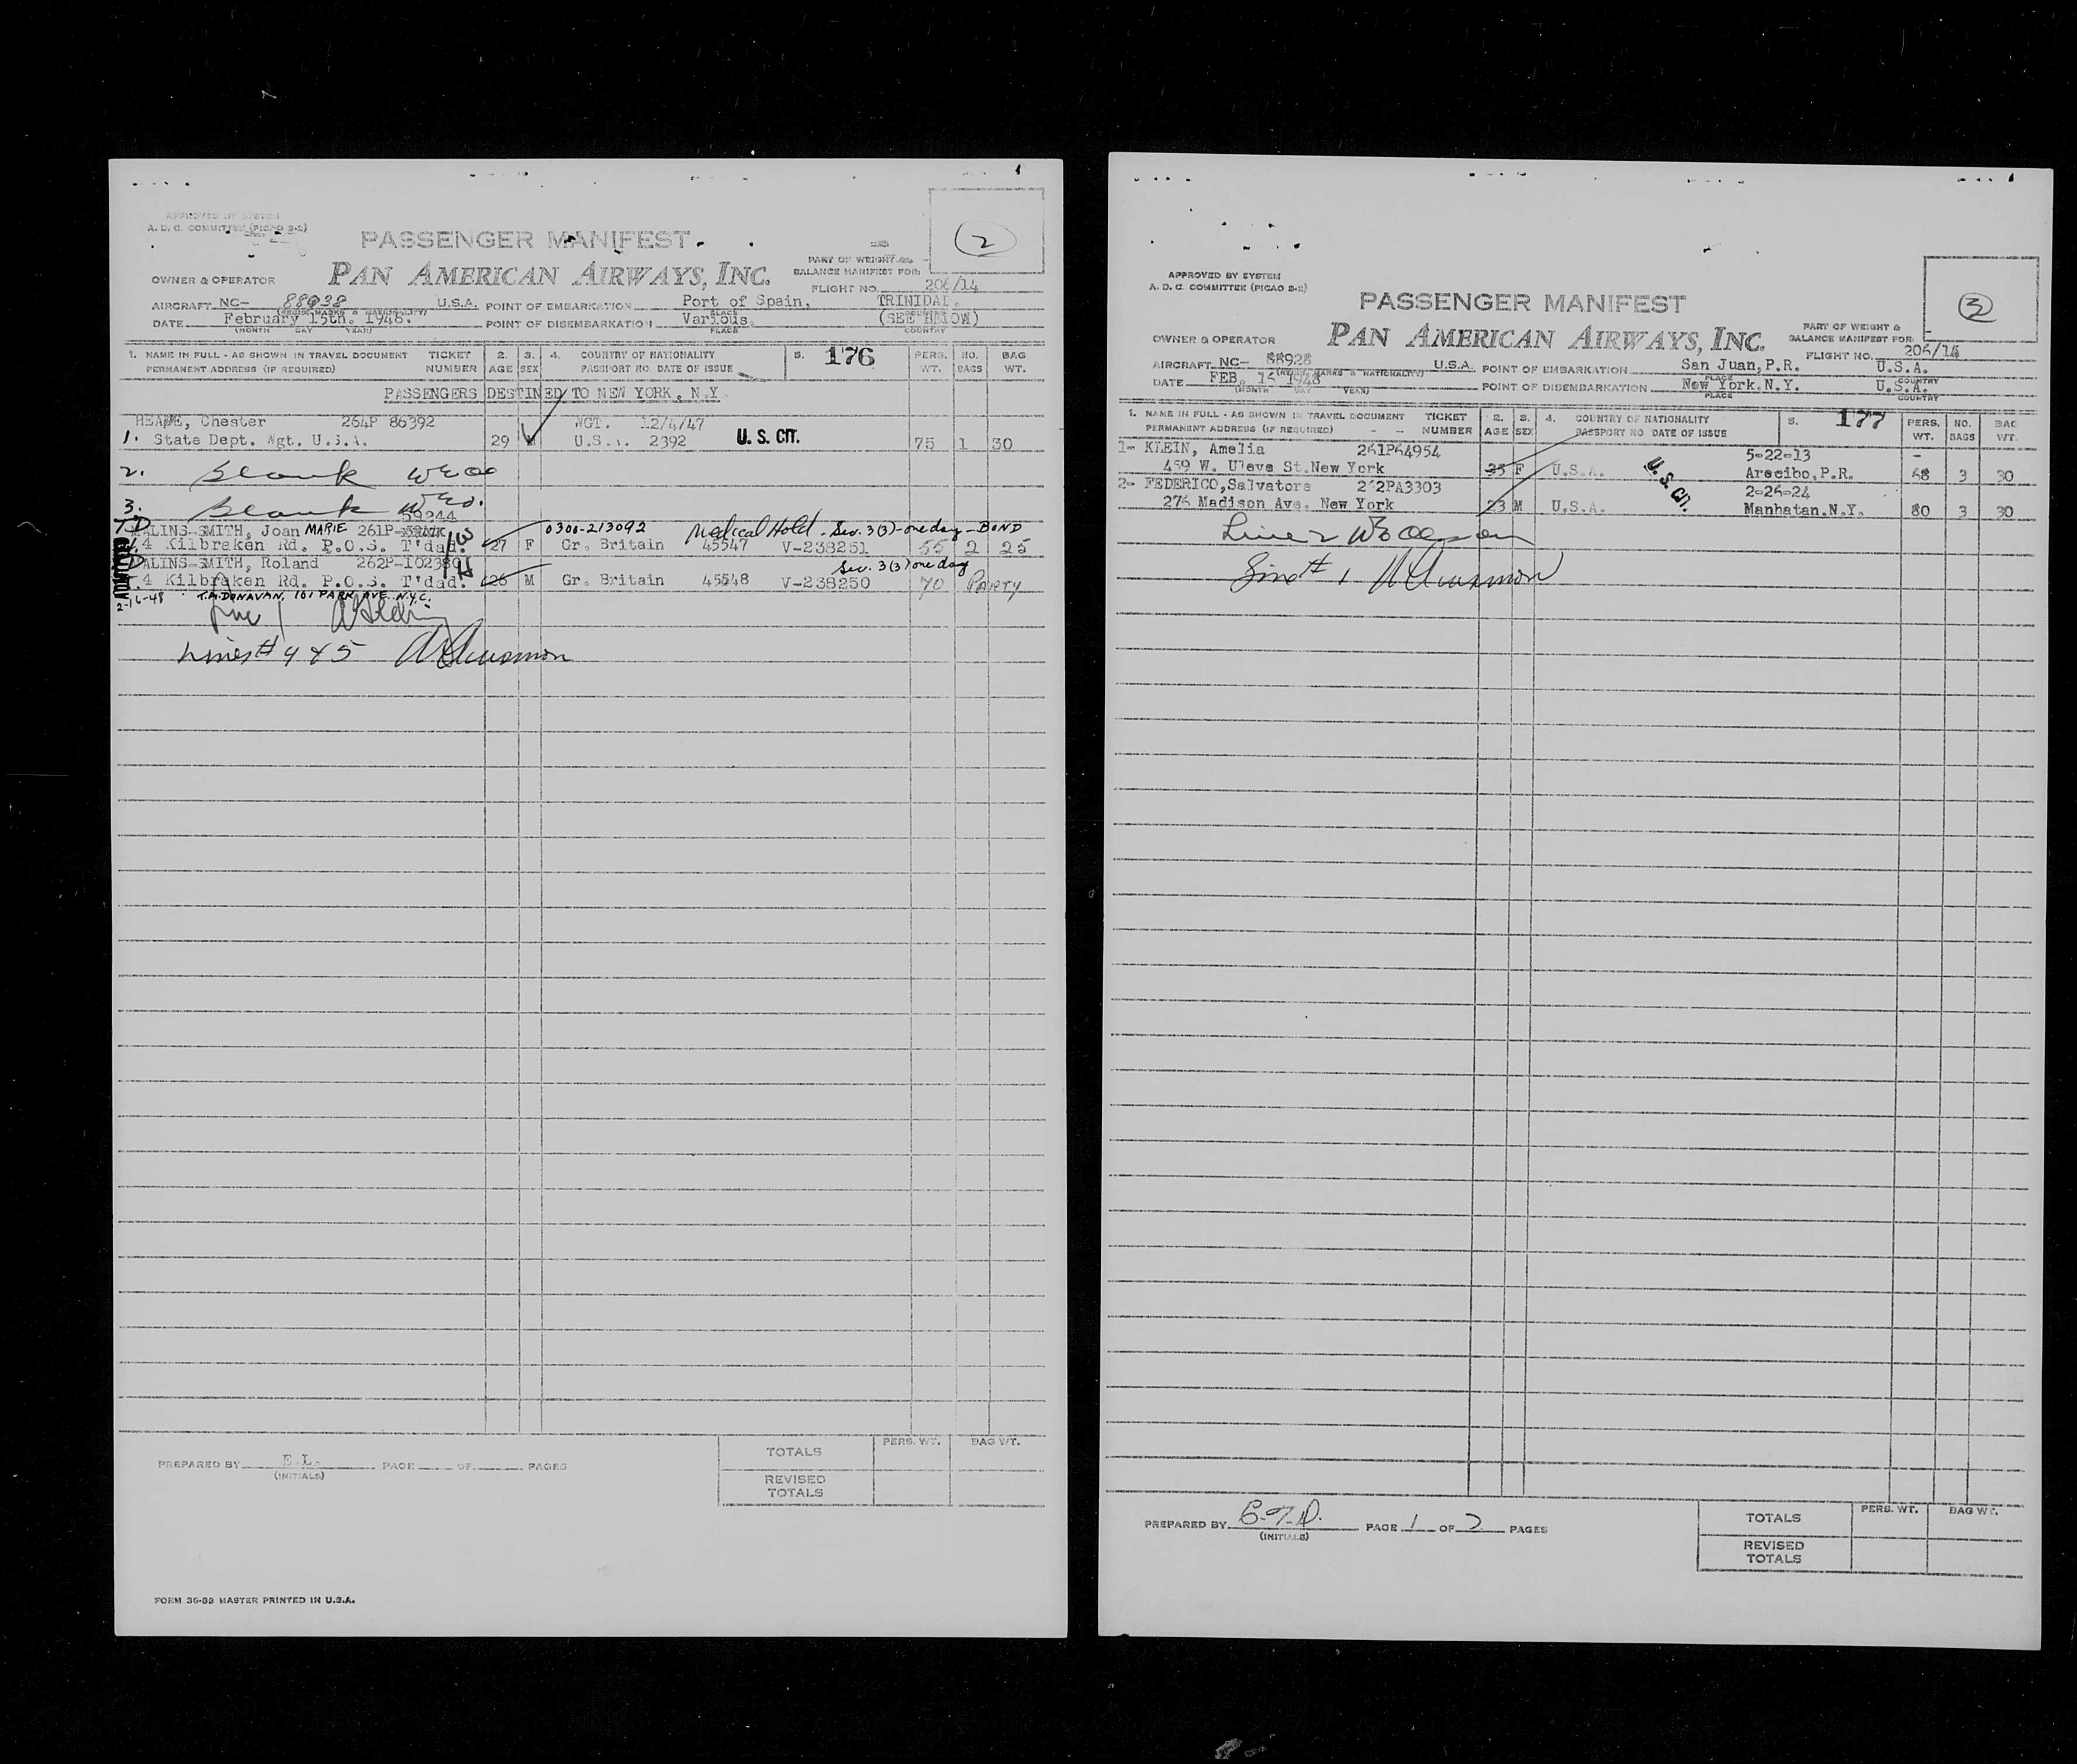 APPROVED BY SYSTEM
A. D. C. COMMITTEE (PICAO 3-2)
2
PASSENGER MANIFEST
PART OF WEIGHT &
BALANCE MANIFEST FOR:
OWNER & OPERATOR PAN AMERICAN AIRWAYS, INC.
FLIGHT NO. 206/14
AIRCRAFT NC- U.S.A. POINT OF EMBARKATION Port of Spain, TRINIDAD.
DATE February 15th. 1948. POINT OF DISEMBARKATION Various. (SEE BELOW)
(MONTH DAY YEAR) PLACE COUNTRY
1. NAME IN FULL - AS SHOWN IN TRAVEL DOCUMENT TICKET 2. 3. 4. COUNTRY OF NATIONALITY 5. 176 PERS. NO. BAG
PERMANENT ADDRESS (IF REQUIRED) NUMBER AGE SEX PASSPORT NO. DATE OF ISSUE WT. BAGS WT.
PASSENGERS DESTINED TO NEW YORK, N.Y.
Chester 264P 86392 WGT. 12/4/47
1. State Dept. Wgt. U.S.A. 29 M U.S.A. 2392 U.S. CIT. 75 1 30
2. Blank
3. Blank
59244
DALINS-SMITH, Joan MARIE 261P- 0300-213092 Medical Hold - Sec. 3(3)-one day-BOND
4 Kilbraken Rd. P.O.S. T'dad. 27 F Gr. Britain 45547 V-238251 55 2 25
DALINS-SMITH, Roland 262P-102380 Sec. 3(3) one day
4 Kilbraken Rd. P.O.S. T'dad. 26 M Gr. Britain 45548 V-238250 70 PARTY
2-16-48 T.A. DONAVAN, 101 PARK AVE. N.Y.C.
Line 1
Lines # 4 & 5
PREPARED BY E.L. PAGE OF PAGES
(INITIALS)
TOTALS PERS. WT. BAG WT.
REVISED
TOTALS
FORM 36-89 MASTER PRINTED IN U.S.A.
APPROVED BY SYSTEM
A. D. C. COMMITTEE (PICAO 3-2)
3
PASSENGER MANIFEST
PART OF WEIGHT &
BALANCE MANIFEST FOR:
OWNER & OPERATOR PAN AMERICAN AIRWAYS, INC.
FLIGHT NO. 206/14
AIRCRAFT NC- 88928 U.S.A. POINT OF EMBARKATION San Juan, P.R. U.S.A.
DATE FEB. 15 1948 POINT OF DISEMBARKATION New York, N.Y. U.S.A.
PLACE COUNTRY
1. NAME IN FULL - AS SHOWN IN TRAVEL DOCUMENT TICKET 2. 3. 4. COUNTRY OF NATIONALITY 5. 177 PERS. NO. BAG
PERMANENT ADDRESS (IF REQUIRED) NUMBER AGE SEX PASSPORT NO DATE OF ISSUE WT. BAGS WT.
1- KLEIN, Amelia 261P64954 5-22-13
459 W. Uleve St. New York F U.S.A. U.S. CIT. Arecibo, P.R. 68 3 30
2- FEDERICO, Salvatore 262PA3303 2-26-24
276 Madison Ave. New York 23 M U.S.A. Manhatan. N.Y. 80 3 30
Line 2
Line # 1
PREPARED BY PAGE 1 OF 2 PAGES
(INITIALS)
TOTALS PERS. WT. BAG WT.
REVISED
TOTALS